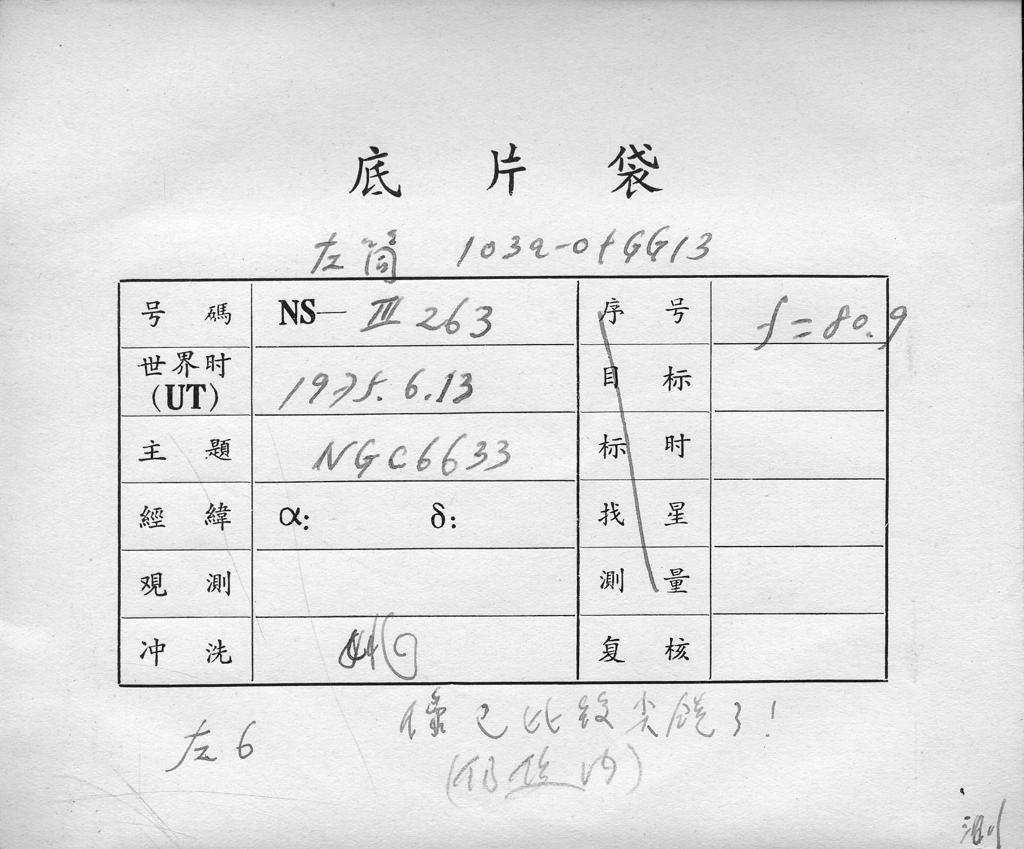 底片袋
左筒 103a-0+GG13
号碼 NS—Ⅲ263 序号 f=80.9
世界时(UT) 1975.6.13 目标
主題 NGC6633 标时
經緯 α: δ: 找星
观測 測量
冲洗 复核
左6 像已比较尖锐了!
測